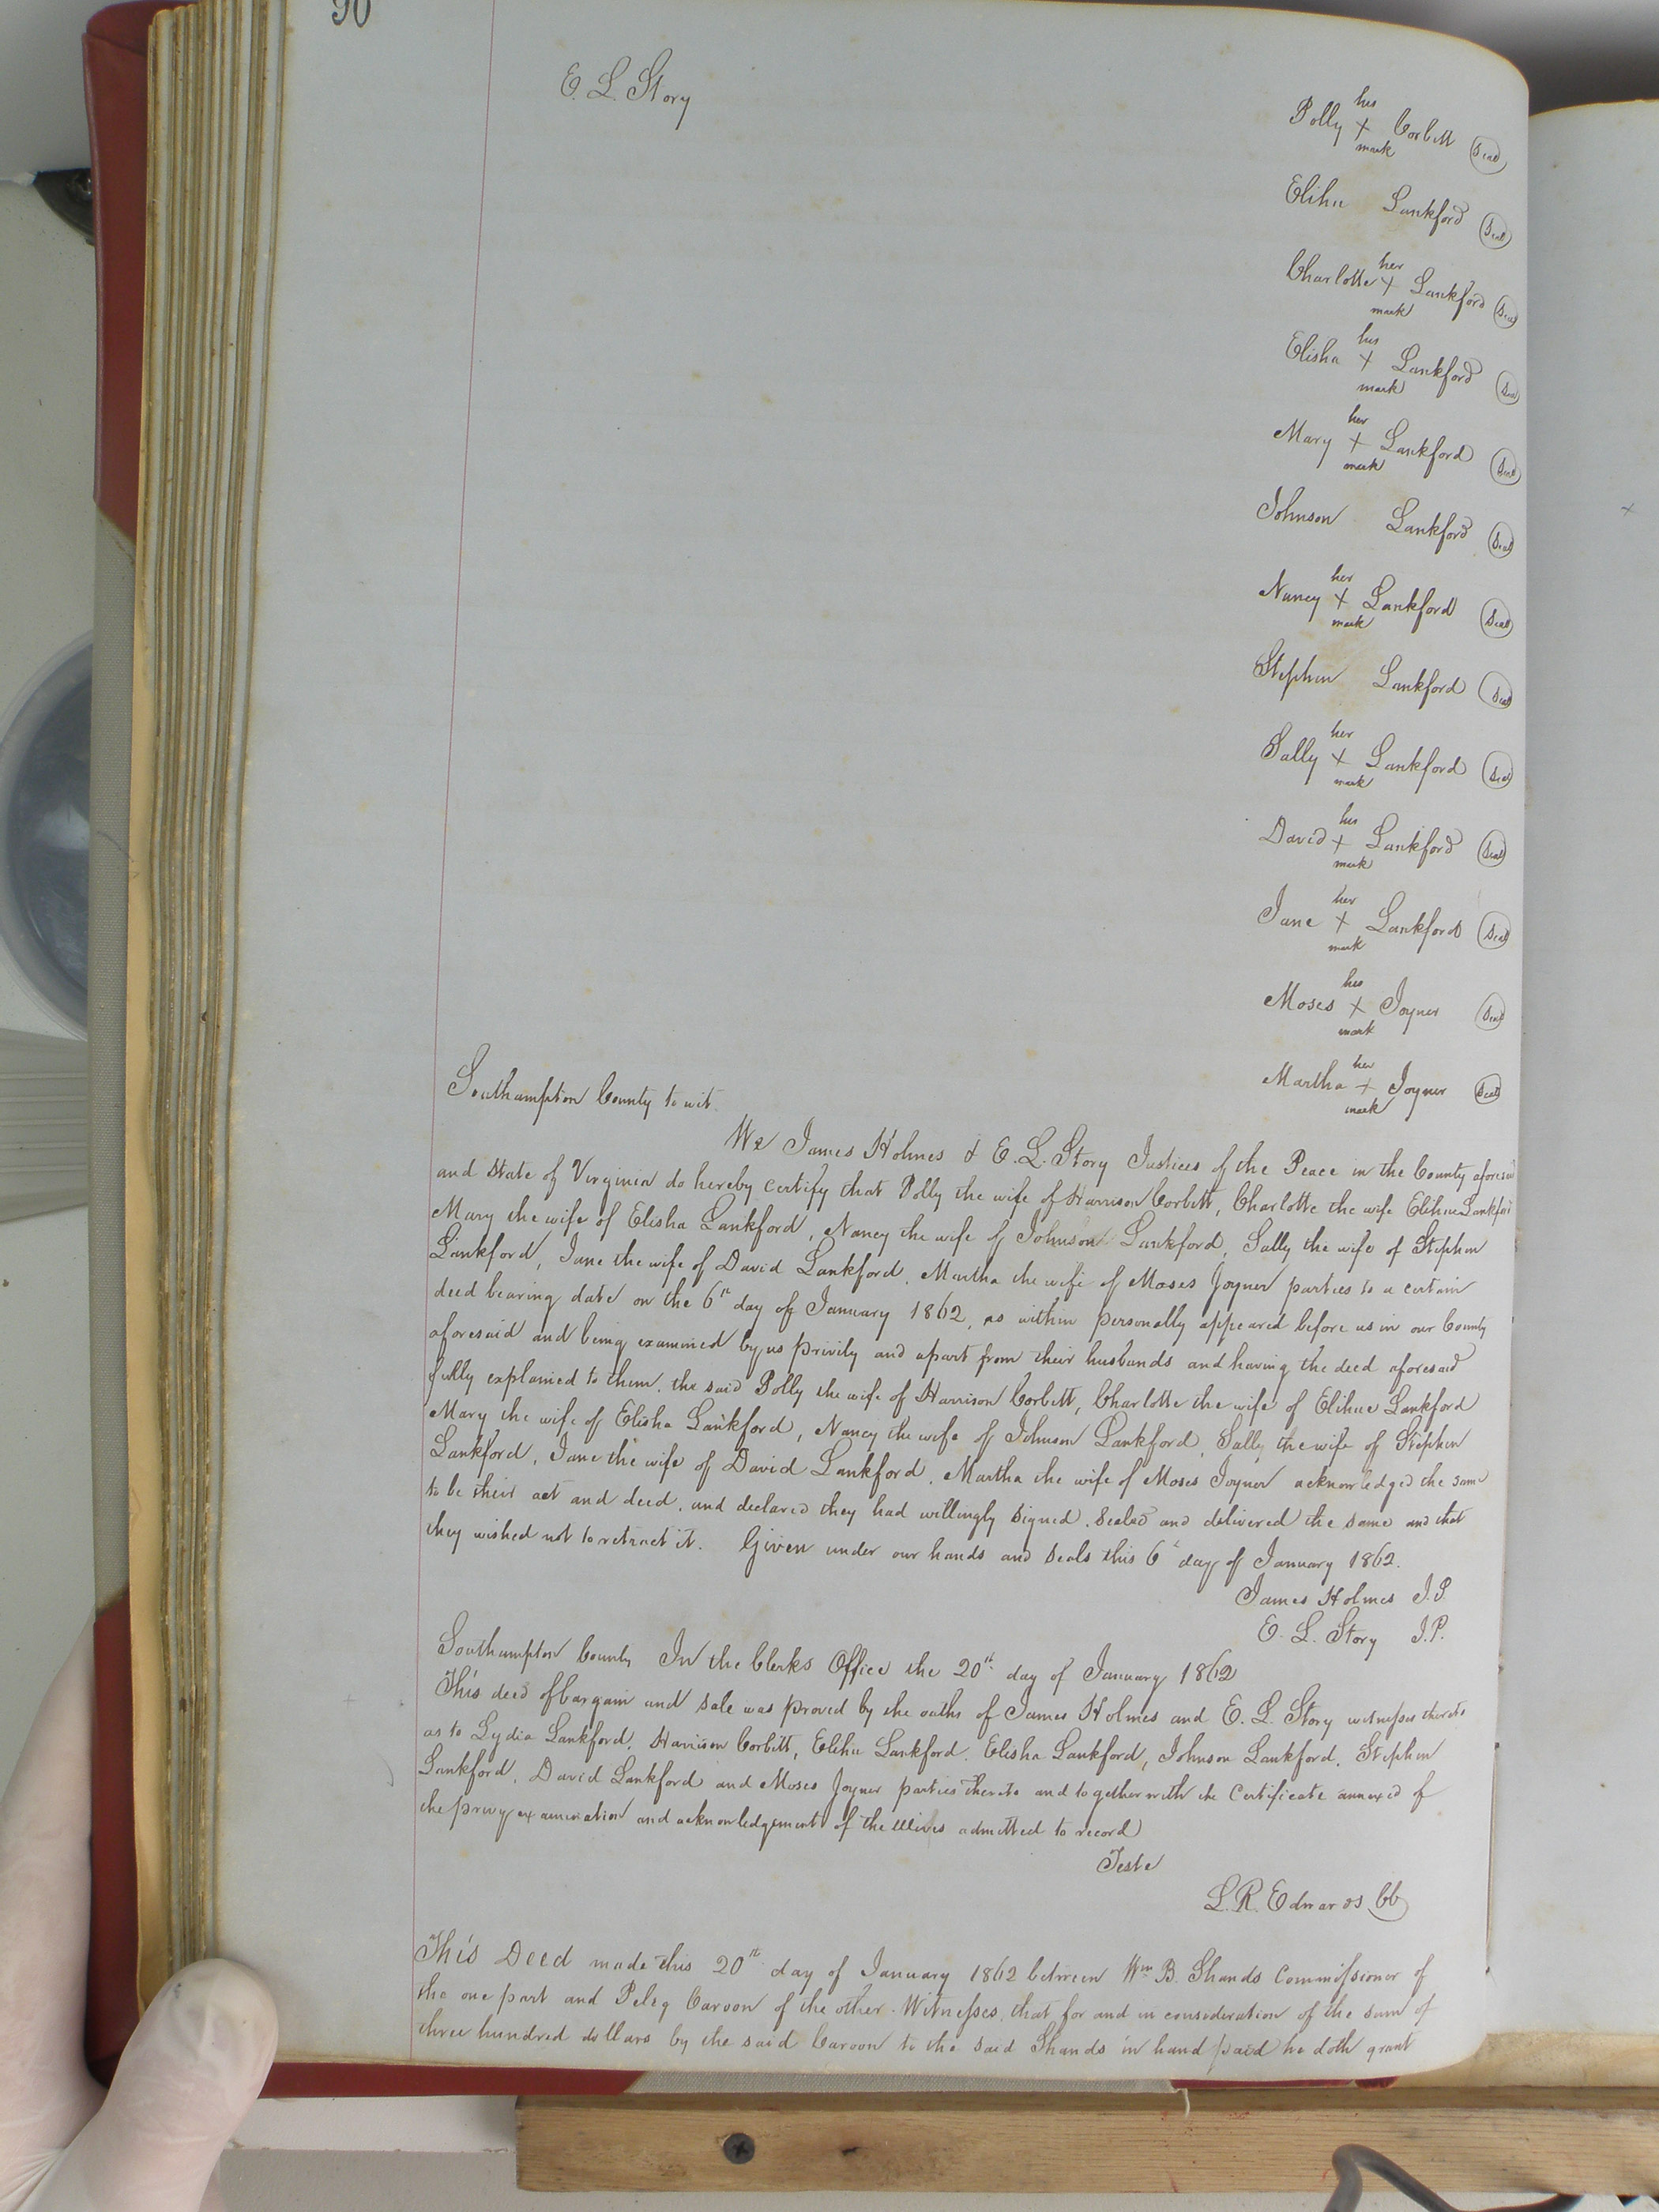 90
E. L. Story
his
Polly + Corbitt Seal
mark
Elihu Lankford Seal
her
Charlotte + Lankford Seal
mark
his
Elisha + Lankford Seal
mark
her
Mary + Lankford Seal
mark
Johnson Lankford Seal
her
Nancy + Lankford Seal
mark
Stephen Lankford Seal
her
Sally + Lankford Seal
mark
his
David + Lankford Seal
mark
her
Jane + Lankford Seal
mark
his
Moses + Joyner Seal
mark
her
Martha + Joyner Seal
mark
Southampton County to wit.
We James Holmes & E. L. Story Justices of the Peace in the County aforesaid
and State of Virginia do hereby certify that Polly the wife of Harrison Corbitt, Charlotte the wife Elihue Lankford
Mary the wife of Elisha Lankford, Nancy the wife of Johnson Lankford, Sally the wife of Stephen
Lankford, Jane the wife of David Lankford, Martha the wife of Moses Joyner parties to a certain
deed bearing date on the 6th day of January 1862, as within personally appeared before us in our County
aforesaid and being examined by us privily and apart from their husbands and having the deed aforesaid
fully explained to them, the said Polly the wife of Harrison Corbitt, Charlotte the wife of Elihue Lankford
Mary the wife of Elisha Lankford, Nancy the wife of Johnson Lankford, Sally the wife of Stephen
Lankford, Jane the wife of David Lankford, Martha the wife of Moses Joyner acknowledged the same
to be their act and deed, and declared they had willingly signed, sealed and delivered the same and that
they wished not to retract it. Given under our hands and seals this 6th day of January 1862.
James Holmes J.P.
E. L. Story J.P.
Southampton County In the Clerks Office the 20th day of January 1862
This deed of bargain and sale was proved by the oaths of James Holmes and E. L. Story witnesses thereto
as to Lydia Lankford, Harrison Corbitt, Elihu Lankford, Elisha Lankford, Johnson Lankford, Stephen
Lankford, David Lankford and Moses Joyner parties thereto and together with the Certificate annexed of
the privy examination and acknowledgement of the Wives admitted to record
Teste
L. R. Edwards CC
This Deed made this 20th day of January 1862 between Wm B. Shands Commissioner of
the one part and Peleg Caroon of the other. Witnesses, that for and in consideration of the sum of
three hundred dollars by the said Caroon to the said Shands in hand paid he doth grant